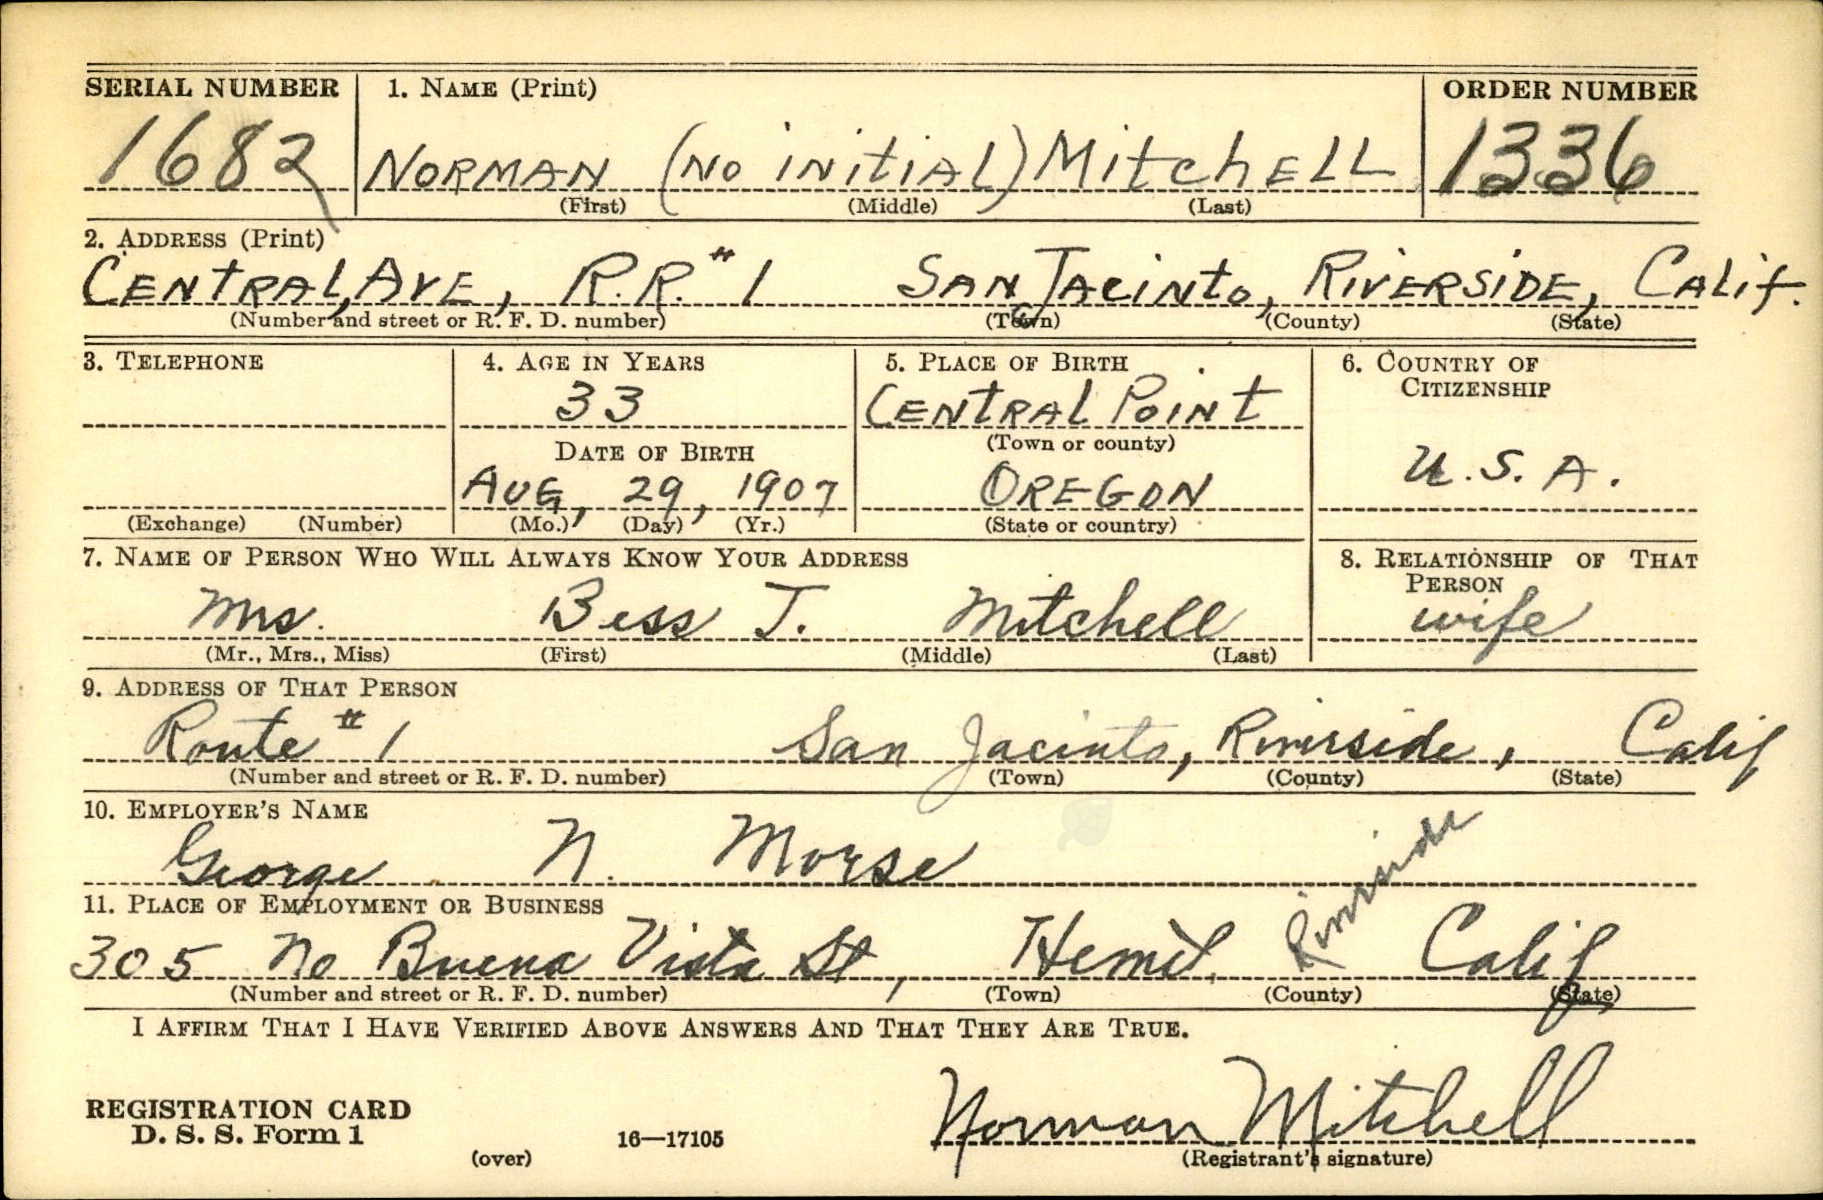 SERIAL NUMBER 1. NAME (Print) ORDER NUMBER
1682 NORMAN (NO INITIAL) MITCHELL 1336
(First) (Middle) (Last)
2. ADDRESS (Print)
CENTRAL AVE, R.R. # 1 SAN JACINTO, RIVERSIDE, CALIF.
(Number and street or R. F. D. number) (Town) (County) (State)
3. TELEPHONE 4. AGE IN YEARS 5. PLACE OF BIRTH 6. COUNTRY OF CITIZENSHIP
33 CENTRAL POINT
DATE OF BIRTH (Town or county)
AUG, 29, 1907 OREGON U.S.A.
(Exchange) (Number) (Mo.) (Day) (Yr.) (State or country)
7. NAME OF PERSON WHO WILL ALWAYS KNOW YOUR ADDRESS 8. RELATIONSHIP OF THAT PERSON
Mrs. Bess J. Mitchell wife
(Mr., Mrs., Miss) (First) (Middle) (Last)
9. ADDRESS OF THAT PERSON
Route # 1 San Jacinto, Riverside, Calif
(Number and street or R. F. D. number) (Town) (County) (State)
10. EMPLOYER'S NAME
George N. Morse
11. PLACE OF EMPLOYMENT OR BUSINESS
305 No Buena Vista St, Hemet, Riverside Calif
(Number and street or R. F. D. number) (Town) (County) (State)
I AFFIRM THAT I HAVE VERIFIED ABOVE ANSWERS AND THAT THEY ARE TRUE.
REGISTRATION CARD
D. S. S. Form 1 16—17105 Norman Mitchell
(over) (Registrant's signature)